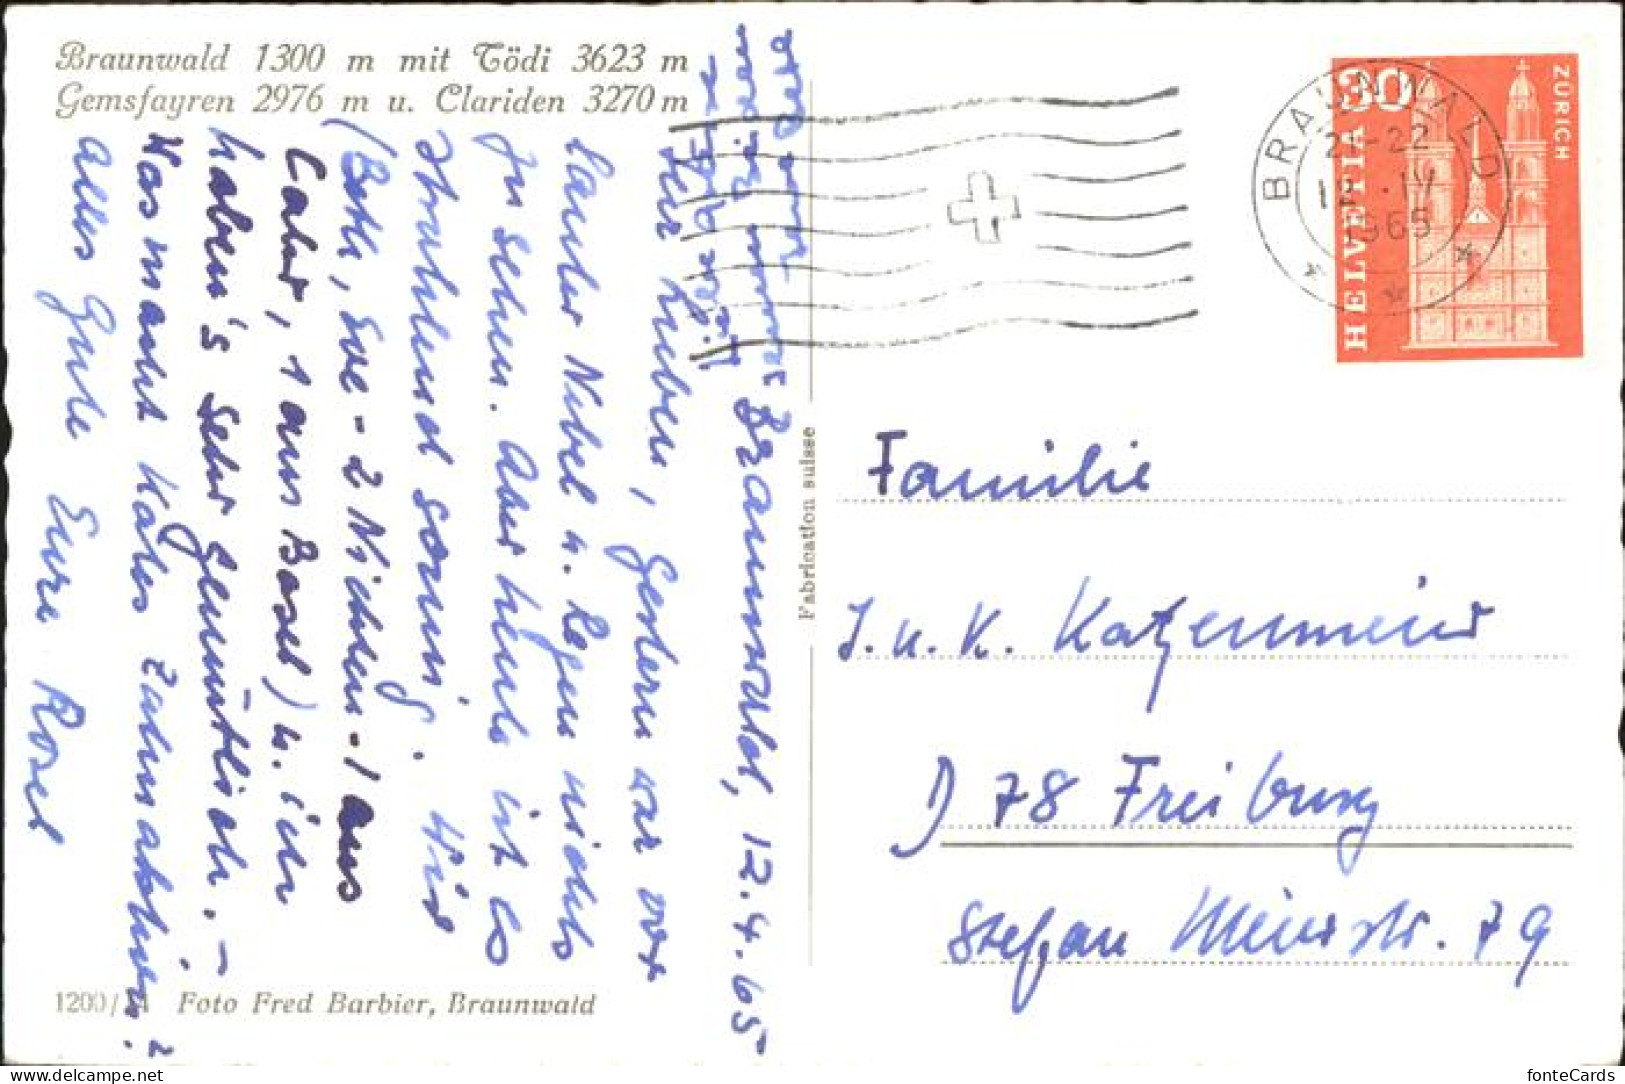 Braunwald 1300 m mit Tödi 3623 m
Gemsfayren 2976 m u. Clariden 3270 m
Braunwald, 12.4.65
Ihr Lieben, Gestern war vor
lauter Nebel u. Regen nichts
zu sehen. Aber heute ist es
strahlend sonnig. Wir
(Beth, Eve - 2 Nichten - 1 aus
Lahr, 1 aus Basel) u. ich
haben's sehr gemütlich. -
Was macht Käles Zahnaktion?
Alles Gute Eure Rosel
1200/A Foto Fred Barbier, Braunwald
Fabrication suisse
BRAUNWALD
21-22
12.IV
1965
30
HELVETIA
ZÜRICH
Familie
J. u. K. Katzenmeier
D 78 Freiburg
Stefan Meierstr. 79
fonteCards